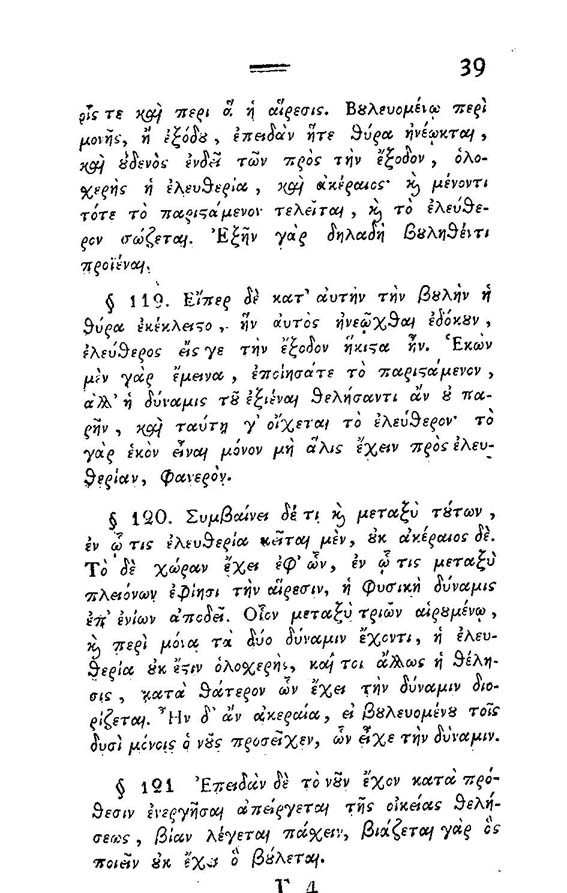 39
ρὶς τε καὶ περι ἃ ἡ αἵρεσις. Βȣλευομένῳ περὶ
μονῆς, ἢ ἐξόδȣ, ἐπειδὰν ἥτε θύρα ἠνέῳκται,
καὶ ȣδενὸς ἐνδεῖ τῶν πρὸς τὴν ἔξοδον, ὁλο-
χερὴς ἡ ἐλευθερία, καὶ ἀκέραιος· ϗ μένοντι
τότε τὸ παριϛάμενον τελεῖται, ϗ τὸ ἐλεύθε-
ρον σώζεται. Ἐξῆν γὰρ δηλαδὴ βȣληθέντι
προϊέναι.
§ 119. Εἴπερ δὲ κατ' αὐτὴν τὴν βȣλὴν ἡ
θύρα ἐκέκλειϛο, ἣν αὐτὸς ἠνεῷχθαι ἐδόκȣν,
ἐλεύθερος εἴς γε τὴν ἔξοδον ἥκιϛα ἦν. Ἑκὼν
μὲν γὰρ ἔμεινα, ἐποιήσατε τὸ παριϛάμενον,
ἀλλ' ἡ δύναμις τȣ͂ ἐξιέναι θελήσαντι ἂν ȣ πα-
ρῆν, καὶ ταύτῃ γ' οἴχεται τὸ ἐλεύθερον· τὸ
γὰρ ἑκὸν εἶναι μόνον μὴ ἅλις ἔχειν πρὸς ἐλευ-
θερίαν, φανερόν.
§ 120. Συμβαίνει δέ τι ϗ μεταξὺ τȣ́των,
ἐν ᾧ τις ἐλευθερία κεῖται μὲν, ȣκ ἀκέραιος δὲ.
Τὸ δὲ χώραν ἔχει ἐφ' ὧν, ἐν ᾧ τις μεταξὺ
πλειόνων ἐφίησι τὴν αἵρεσιν, ἡ φυσικὴ δύναμις
ἐπ' ἐνίων ἀποδεῖ. Οἷον μεταξὺ τριῶν αἱρȣμένῳ,
ϗ περὶ μόνα τὰ δύο δύναμιν ἔχοντι, ἡ ἐλευ-
θερία ȣκ ἔϛιν ὁλοχερὴς, καί τοι ἄλλως ἡ θέλη-
σις, κατὰ θάτερον ὧν ἔχει τὴν δύναμιν διο-
ρίζεται. Ἦν δ' ἂν ἀκεραία, εἰ βȣλευομένȣ τοῖς
δυσὶ μόνοις ὁ νȣ͂ς προσεῖχεν, ὧν εἶχε τὴν δύναμιν.
§ 121 Ἐπειδὰν δὲ τὸ νȣ͂ν ἔχον κατὰ πρό-
θεσιν ἐνεργῆσαι ἀπείργεται τῆς οἰκείας θελή-
σεως, βίαν λέγεται πάχειν, βιάζεται γὰρ ὃς
ποιεῖν ȣκ ἔχει ὃ βȣ́λεται.
Γ 4